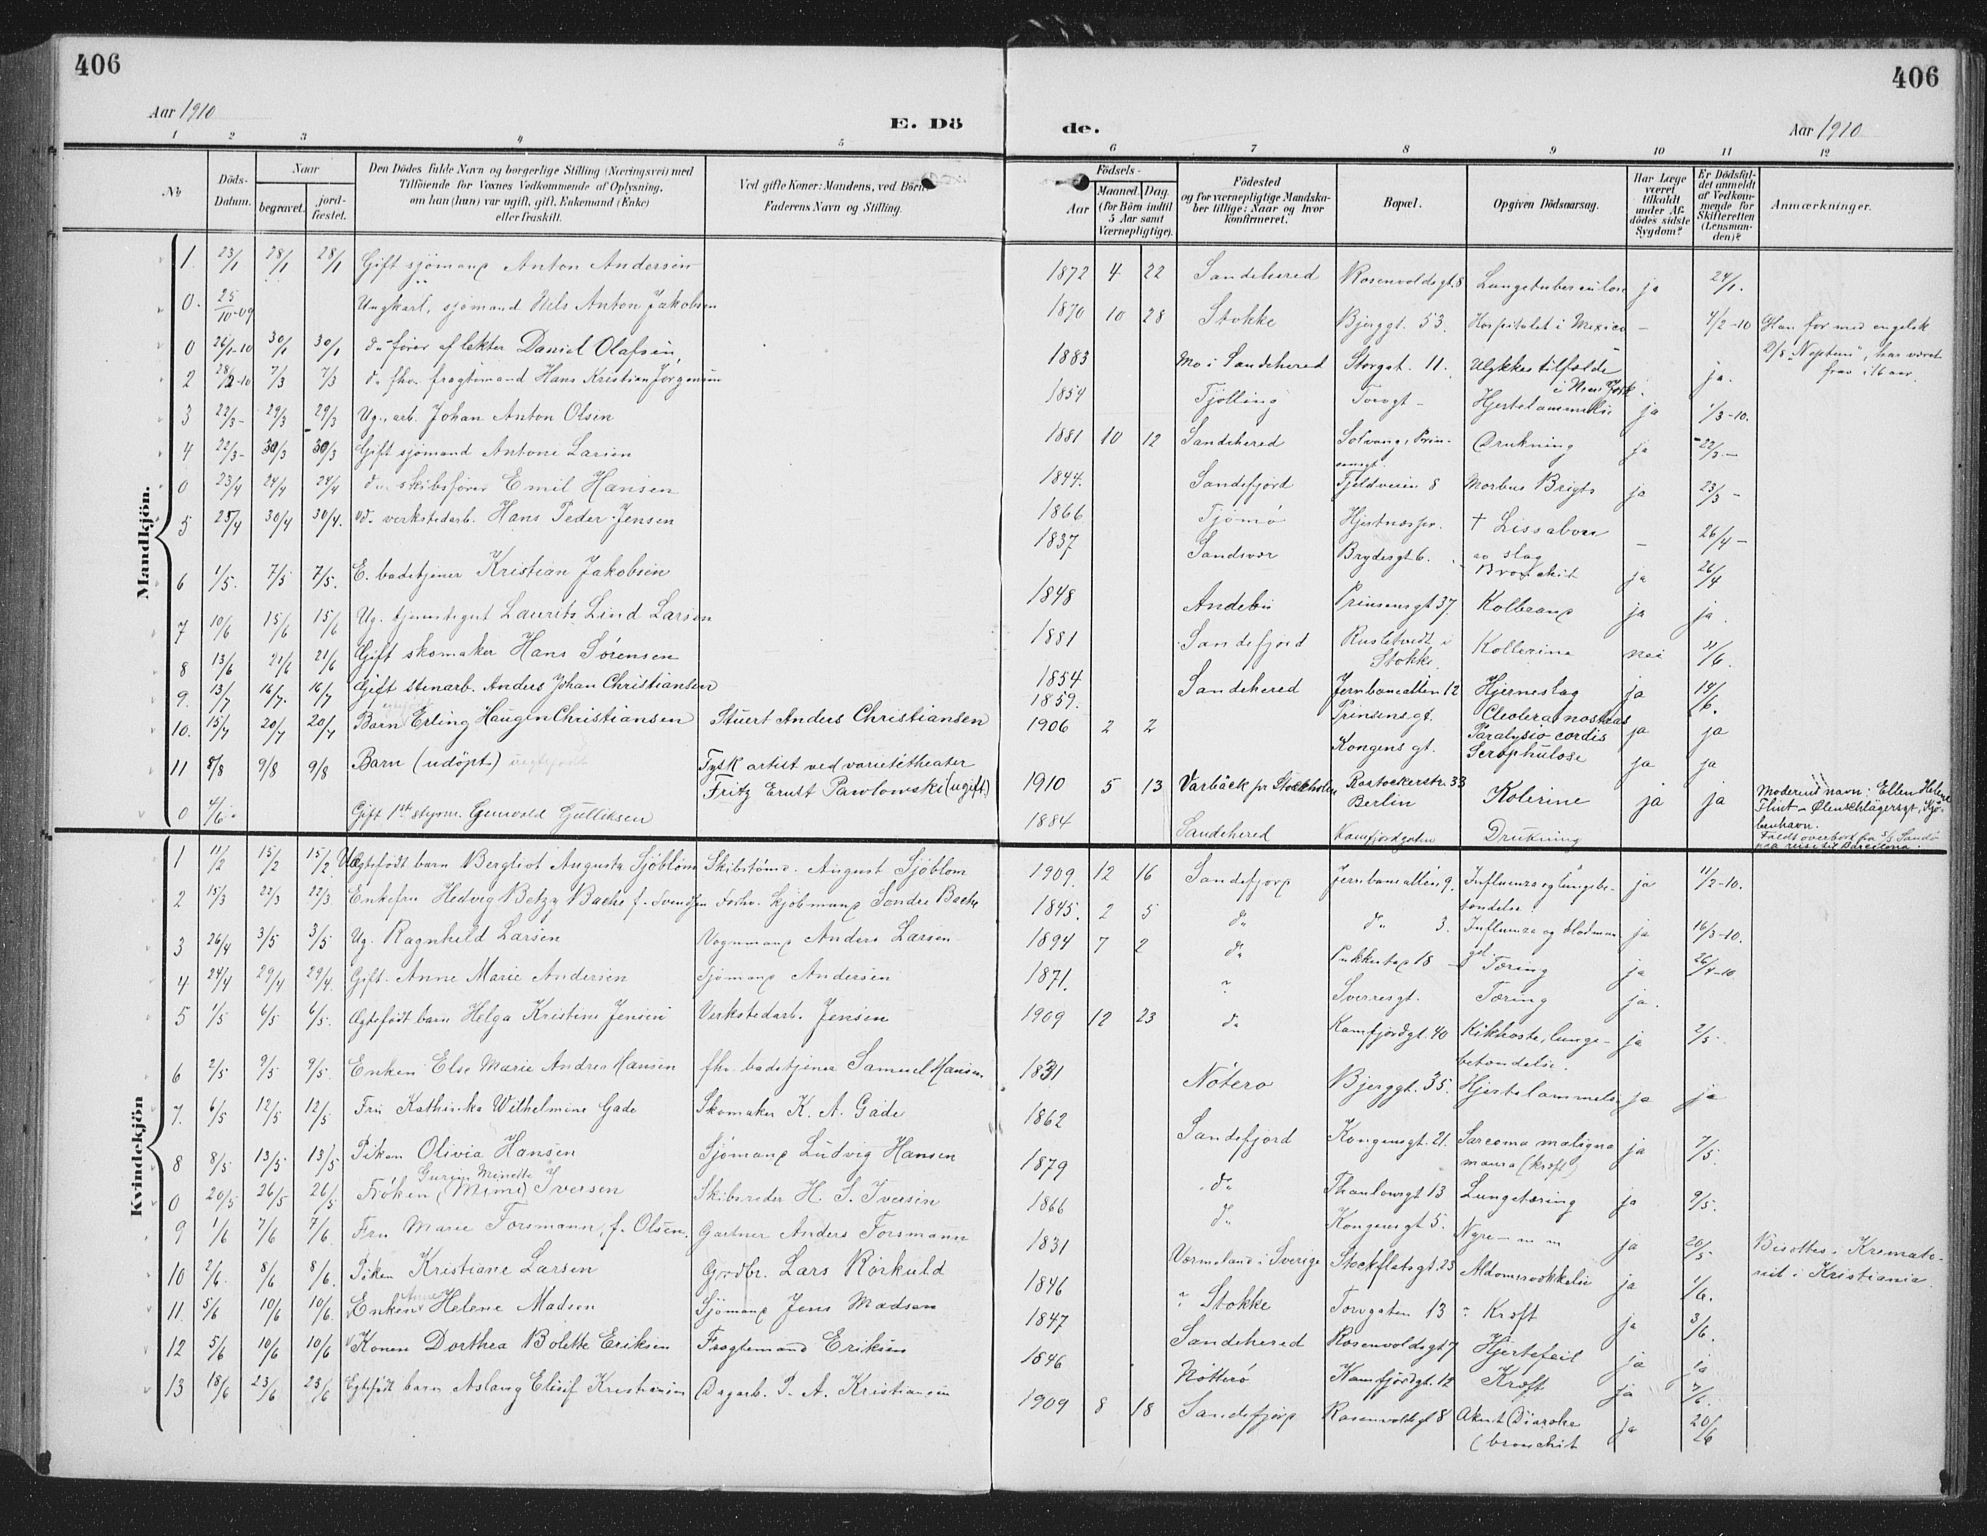 406
406
Aar 1910
E. Dö
de.
Aar 1910
1 2 3 4 5 6 7 8 9 10 11 12
No
Döds-Datum.
Naar
begravet.
jord-fæstet.
Den Dödes fulde Navn og borgerlige Stilling (Næringsvei) med
Tilföiende for Voxnes Vedkommende af Oplysning,
om han (hun) var ugift, gift, Enkemand (Enke)
eller fraskilt.
Ved gifte Koner: Mandens, ved Börn:
Faderens Navn og Stilling.
Födsels-
Aar
Maaned. Dag.
(for Börn indtil
5 Aar samt
Værnepligtige).
Födested
og for værnepligtige Mandska-
ber tillige: Naar og hvor
konfirmeret.
Bopæl.
Opgiven Dödsaarsag.
Har Læge
været
tilkaldt
under Af-
dödes sidste
Sygdom?
Er Dödsfal-
det anmeldt
af Vedkom-
mende for
Skifteretten
(Lensman-
den)?
Anmærkninger.
Mandkjön.
1 23/1 28/1 28/1 Gift sjömand Anton Andersen 1872 4 22 Sandehered Rosenvoldsgt. 8 Lungetuberculose ja 24/1.
0. 25/10-09 Ungkarl, sjömand Nils Anton Jakobsen 1870 10 28 Stokke Bjerggt. 53. Hospitalet i Mexico - 4/2-10 Han for med engelsk
0 26/1-10 30/1 30/1 do förer af lekter Daniel Olafsen, 1883 Mo i Sandehered Storgt. 11. Ulykkestilfælde i New York ja. S/S "Neptun", har været
fra i 16 aar.
2 28/2-10 7/3 7/3 do fhv. fragtemand Hans Kristian Jørgensen 1854 Tjølling Torvgt - Hjertelammelse ja 1/3-10.
3 22/3- 29/3 29/3 Ug. arb. Johan Anton Olsen 1881 10 12 Sandehered Solvang, Prin-
sensgt. Drukning ja 22/3-
4 22/3- 30/3 30/3 Gift sjömand Antone Larsen 1844. Sandefjord Fjeldveien 8 Morbus Brigts ja 23/3-
0 23/4 24/4 24/4 do skibsfører Emil Hansen 1866 Tjømø + Lissabon - 26/4-
5 25/4 30/4 30/4. do verkstedarb. Hans Peder Jensen 1837 Sandsvær Brydesgt 6. av slag
Bronchit ja 26/4
6 1/5. 7/5 7/5. E. badetjener Kristian Jakobsen 1848 Andebu Prinsensgt 37. ja ja.
7 10/6 15/6 15/6 Ug. tjenestegut Laurits Lind Larsen 1881 Sandefjord i
Stokke. Kollerine nei 11/6.
8 13/6 21/6 21/6 Gift skomaker Hans Sørensen 1854 Sandehered Jernbanealleen 12 Hjerneslag ja 14/6.
9. 13/7 16/7. 16/7 Gift stenarb. Anders Johan Christiansen 1859. Prinsensgt. Cholera nostras
Paralysio cordis ja ja
10. 15/7 20/7 20/7 Barn Erling Haugen Christiansen Stuert Anders Christiansen 1906 2 2 Kongens gt. Scrophulose ja ja
11 8/8 9/8 9/8 Barn (udöpt.) Tysk artist ved varietétheater
Fritz Ernst Pawlowski (ugift.) 1910 5 13 Varbäck pr Stockholm Rostockerstr. 33
Berlin Kolerine ja ja Moderens navn: Ellen Helene
Flint - Ølenschlägersgt, Kjø-
benhavn.
0 4/6. Gift 1st styrm. Gunvald Gulliksen 1884 Sandehered Kamfjordgaten Drukning Faldt overbord fra S/S Sandø
paa reise til Barcelona.
Kvindekjön
1 11/2 15/2 15/2 Ægtefødt barn Bergliot Augusta Sjöblom Skibstömr. August Sjöblom 1909. 12 16 Sandefjord Jernbanealleen 9. Influenza og lungebe-
tændelse. ja 11/2-10.
2 15/3 22/3 22/3 Enkefru Hedvig Betzy Bache f. Svendsen Forhv. Kjöbmand Sondre Bache 1845. 2 5 do do 3. Influenza og blodman-
gel ja 16/3-10.
3 26/4 3/5 3/5 Ug. Ragnhild Larsen Vognmand Anders Larsen 1894 7 2 do Pukkestad 18 - Tæring ja 26/4-10
4 24/4 29/4 29/4. Gift. Anne Marie Andersen Sjömand Andersen 1871. Sverresgt. Tæring ja.
5 1/5 6/5 6/5. Ægtefødt barn Helga Kristine Jensen Verkstedarb. Jensen 1909 12 23 do Kamfjordgt. 40 Kikhoste, lunge-
betændelse. ja 2/5.
6 2/5 9/5 9/5. Enken Else Marie Andrea Hansen fhv. badetjener Samuel Hansen 1831 Nøterø Bjerggt. 35. Hjertelammelse ja ja
7. 6/5 12/5 12/5. Fru Kathinka Wilhelmine Gade Skomaker K. A. Gade 1862 Sandefjord Kongensgt. 21. Sarcoma maligna
(kræft) ja 7/5.
8 8/5 13/5 13/5 Piken Olivia Hansen Sjömand Ludvig Hansen 1879 do Thaulowsgt 13 Lungetæring ja 9/5.
0 20/5 26/5 26/5 Frøken (Mimi) Iversen Skibsreder H. S. Iversen 1866 do Kongensgt 5. Nyre ja 20/5 Bisættes i Kremato-
riet i Kristiania.
9 1/6 7/6 7/6. Fru Marie Forsmann, f. Olsen. Gartner Anders Forsmann 1831 Værmeland i Sverige Stockfletsgt. 23 Alderdomssvakkelse ja 1/6.
10 2/6. 8/6 8/6. Piken Kristiane Larsen Grdbr. Lars Rørkuld 1846 Stokke Torvgaten 13 Kræft ja 3/6.
11. 5/6 10/6 10/6. Enken Anne Helene Madsen Sjömand Jens Madsen 1847 Sandehered Rosenvoldsgt 7 Hjertefeil ja ja
12 5/6 10/6 10/6 Konen Dorthea Bolette Eriksen Fragtemand Eriksen 1846 Nötterö Kamfjordgt. 12 Kræft ja 7/6.
13 18/6 23/6 23/6 Egtefødt barn Aslaug Elisif Kristiansen Dagarb. P. A. Kristiansen 1909 8 18 Sandefjord Rosenvoldsgt 8 Akut Diaroke
(bronchit ja 20/6